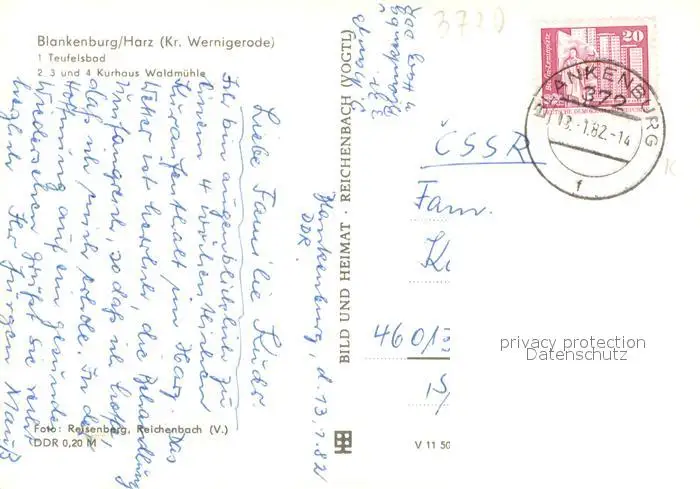 Blankenburg/Harz (Kr. Wernigerode)
1 Teufelsbad
2. 3 und 4 Kurhaus Waldmühle
Blankenburg, d. 13.1.82
DDR.
Liebe Familie
Ich bin augenblicklich zu
einem 4 wöchentlichen
Kuraufenthalt im Harz. Das
Wetter ist herrlich, die Behandlung
umfangreich, so daß ich hoffe,
daß ich mich erhole. In der
Hoffnung auf ein gesundes
Wiedersehen grüßt Sie recht
herzlich Ihr Jürgen
Foto: Reisenberg, Reichenbach (V.)
DDR 0,20 M
BILD UND HEIMAT · REICHENBACH (VOGTL)
V 11 50
372
20
BLANKENBURG
372
13.-1.82.-14
f
ČSSR
Fam.
460/13
privacy protection
Datenschutz